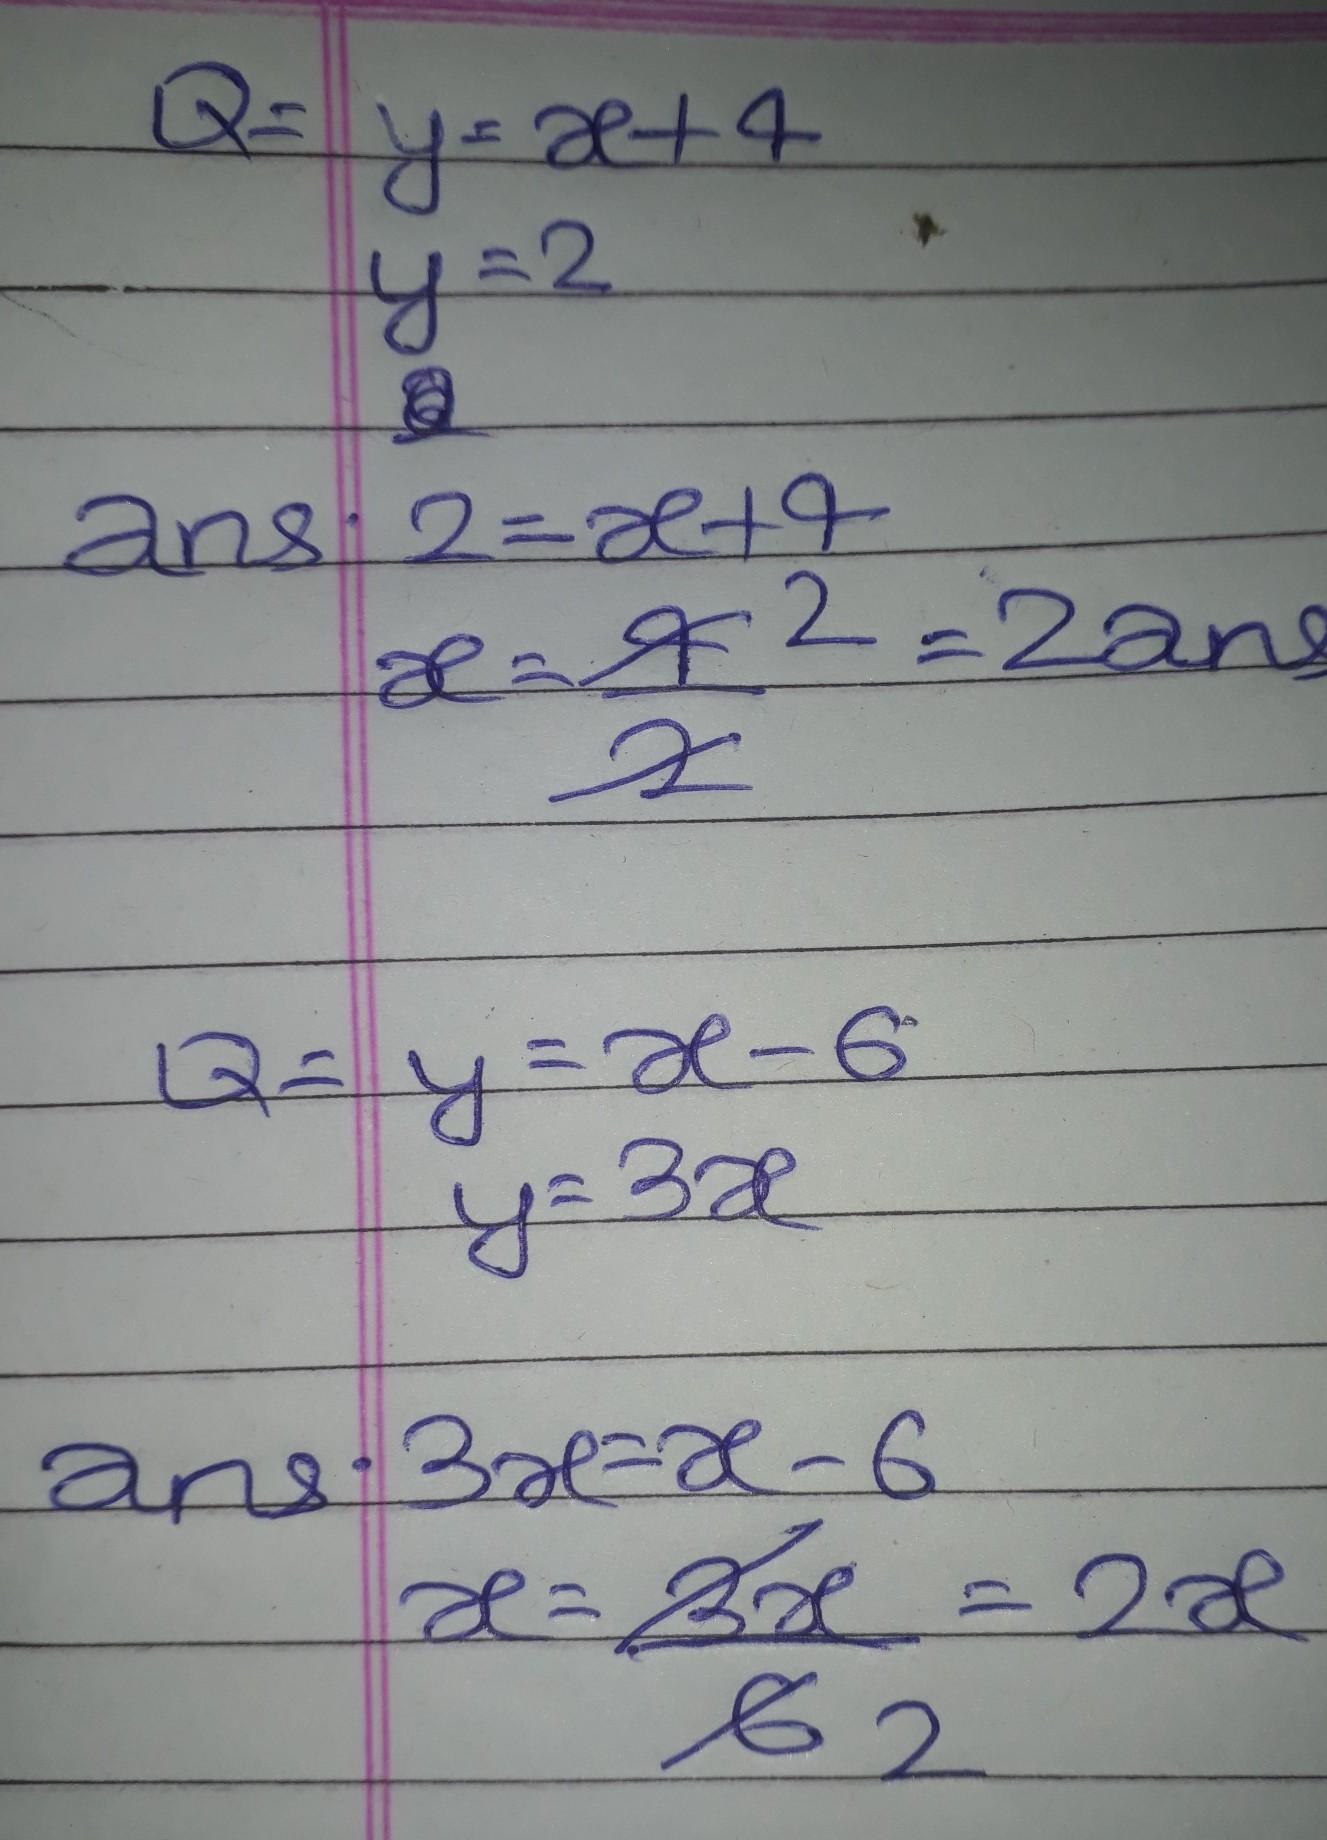 Q= y = x + 4
y = 2
ans. 2 = x + 4
x = 4 2 = 2 ans
2
Q= y = x - 6
y = 3x
ans. 3x = x - 6
x = 3x = 2x
6 2